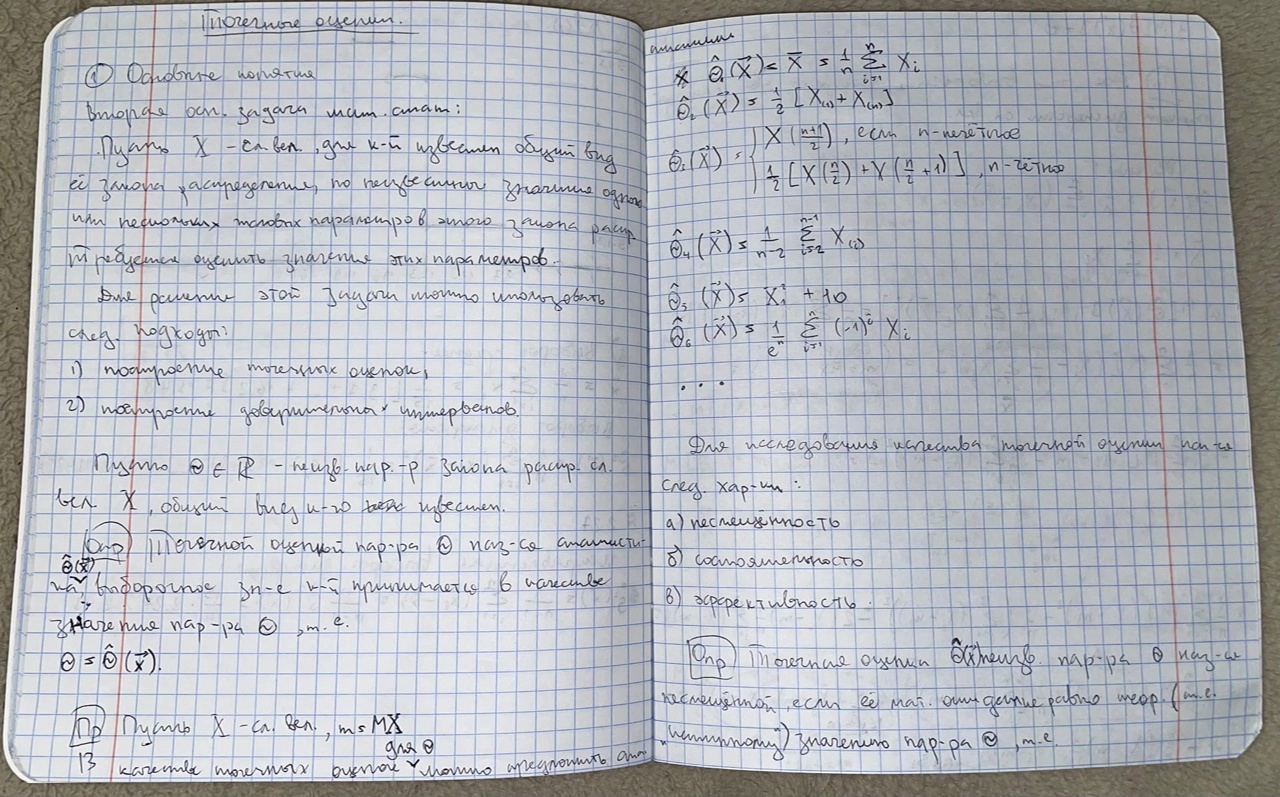 Точечные оценки.
① Основные понятия
Вторая осн. задача мат. стат:
Пусть X – сл. вел., для к-й известен общий вид
её закона распределения, но неизвестны значение одного
или нескольких числовых параметров этого закона распр.
Требуется оценить значения этих параметров.
Для решения этой задачи можно использовать
след. подходы:
1) построение точечных оценок,
2) построение доверительных интервалов.
Пусть Θ ∈ ℝ – неизв. пар-р закона распр. сл.
вел. X, общий вид к-го известен.
Опр Точечной оценкой пар-ра Θ наз-ся статисти-
ка θ̂(x⃗) выборочное зн-е к-й принимается в качестве
значения пар-ра Θ, т.е.
Θ = Θ̂(x⃗).
Пр Пусть X – сл. вел., m = MX
В качестве точечных оценок для Θ можно предложить
статистики
Θ̂₁(X⃗) = X̄ = 1/n Σ_{i=1}^{n} X_i
Θ̂₂(X⃗) = 1/2 [X_(1) + X_(n)]
Θ̂₃(X⃗) = { X(n+1/2), если n-нечётное
1/2 [X(n/2) + X(n/2 + 1)], n-чётное
Θ̂₄(X⃗) = 1/(n-2) Σ_{i=2}^{n-1} X_(i)
Θ̂₅(X⃗) = X₁² + 10
Θ̂₆(X⃗) = 1/eⁿ Σ_{i=1}^{n} (-1)^i X_i
...
Для исследования качества точечной оценки исп-ся
след. хар-ки:
а) несмещённость
б) состоятельность
в) эффективность.
Опр Точечная оценка Θ̂(x⃗) неизв. пар-ра Θ наз-ся
несмещённой, если её мат. ожидание равно теор. (т.е.
"истинному") значению пар-ра Θ, т.е.